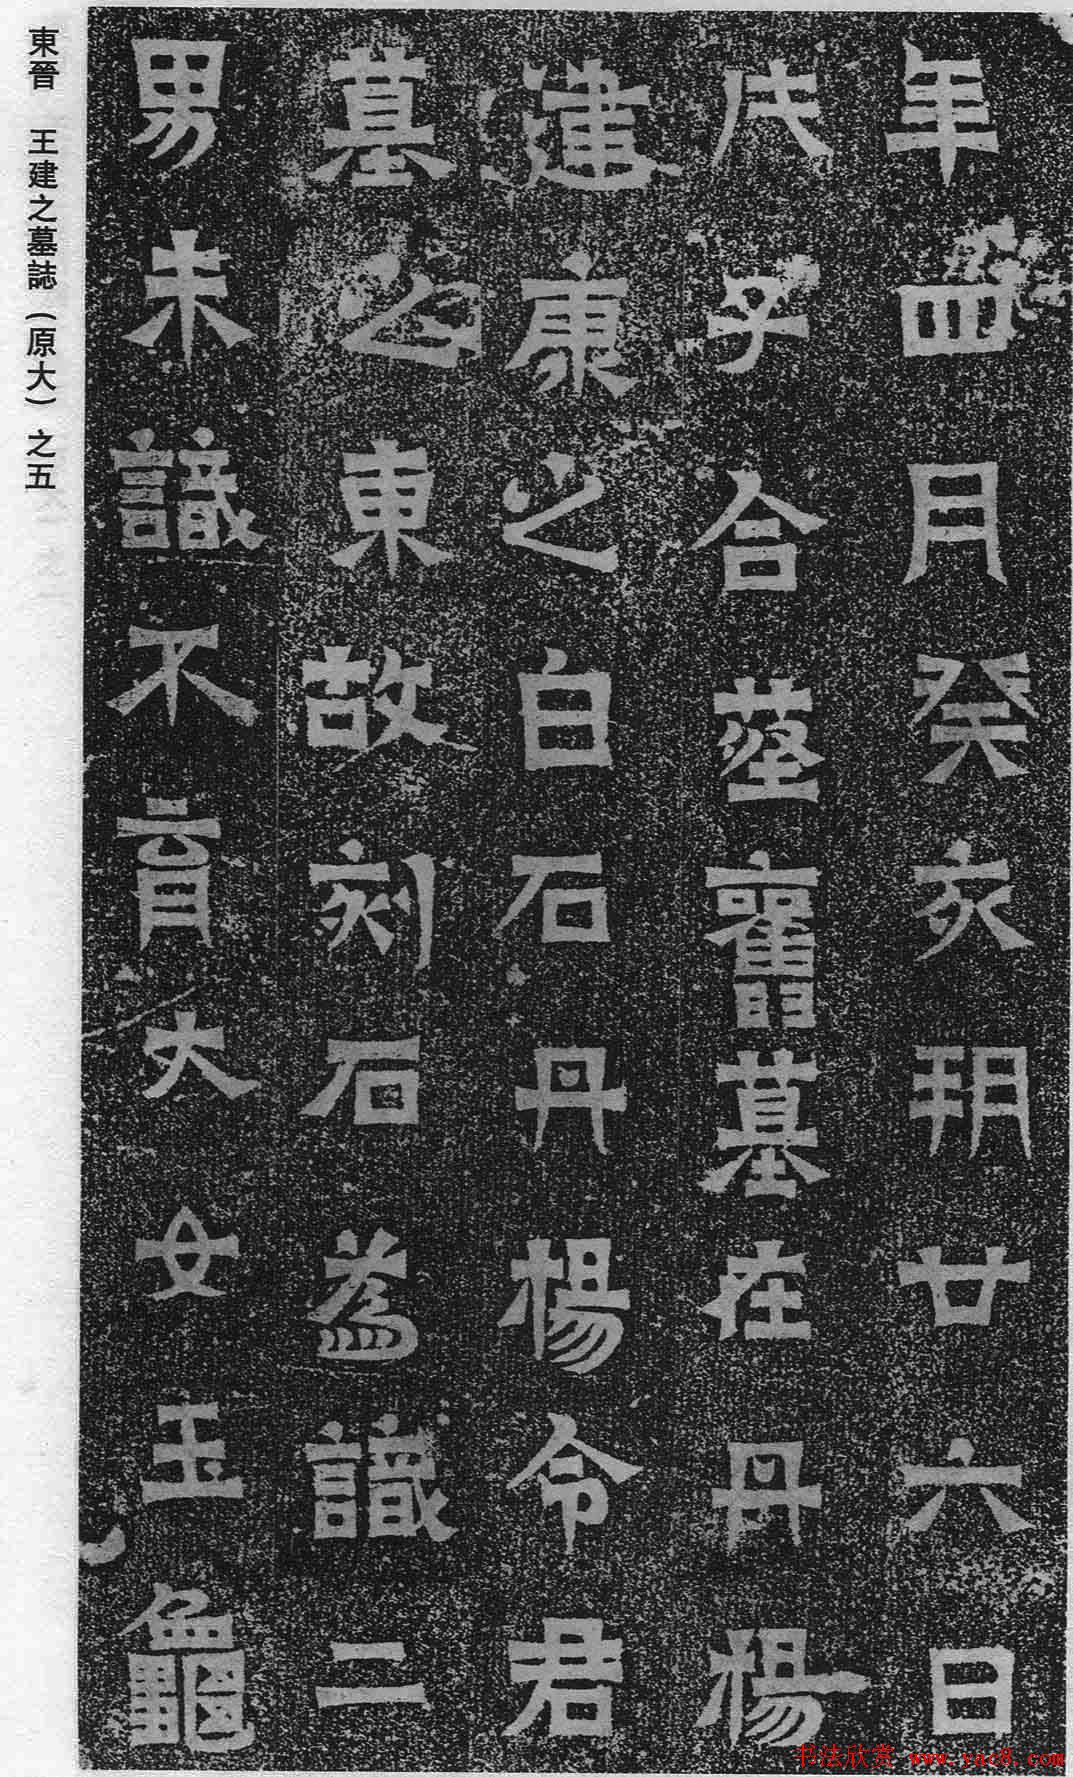 年四月癸亥朔廿六日
戊子合葬舊墓在丹楊
建康之白石丹楊令君
墓之東故刻石為識二
男未識不育大女玉龜
東晉 王建之墓誌(原大)之五
书法欣赏 www.yac8.com